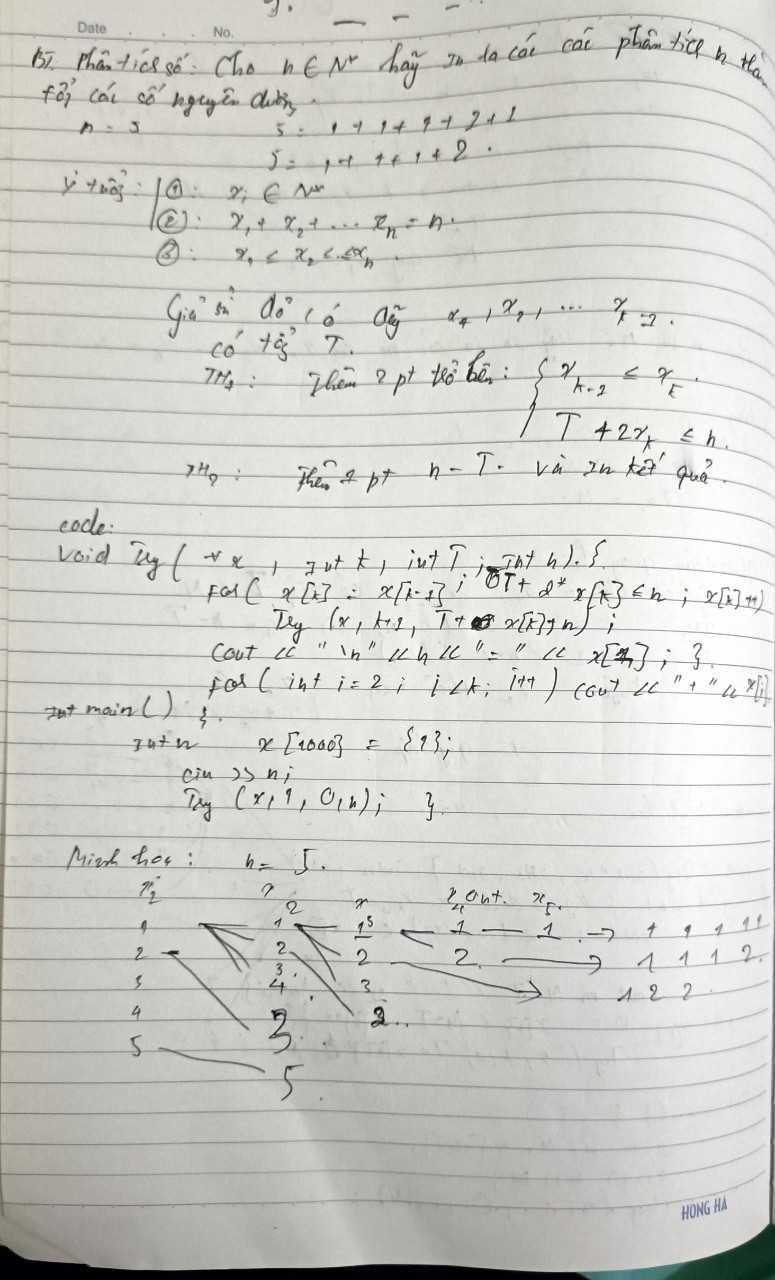 Date No.
BT. Phân tích số: Cho n ∈ N* hãy in ra các các phân tích n thà
tổng các số nguyên dương.
n = 5 5 = 1 + 1 + 1 + 1 + 1
5 = 1 + 1 + 1 + 2.
Ý tưởng: ①: xᵢ ∈ N*
②: x₁ + x₂ + ... xₙ = n.
③: x₁ ≤ x₂ ≤ .. ≤ xₙ.
Giả sử đã có dãy x₁, x₂, ... xₖ₋₁.
có tổng T.
TH₁: Thêm 2 pt trở lên: { xₖ₋₁ ≤ xₖ.
T + 2xₖ ≤ n.
TH₂: Thêm 1 pt n - T. và in kết quả.
code:
void Try( * x, int k, int T, int n). {
For( x[k] = x[k-1]; T + 2* x[k] ≤ n; x[k]++)
Try (x, k+1, T + x[k], n);
Cout << "\n" << n << "=" << x[1]; }.
For( int i = 2; i < k; i++ ) cout << "+" << x[i]
int main() {.
int n x[1000] = {1};
cin >> n;
Try (x, 1, 0, n); }.
Minh hoạ: n = 5.
1 1 1 1 — 1 → 1 1 1 1 1
2 2 2 2 → 1 1 1 2.
3 3 3 1 2 2.
4 4
5 3
5
HONG HA